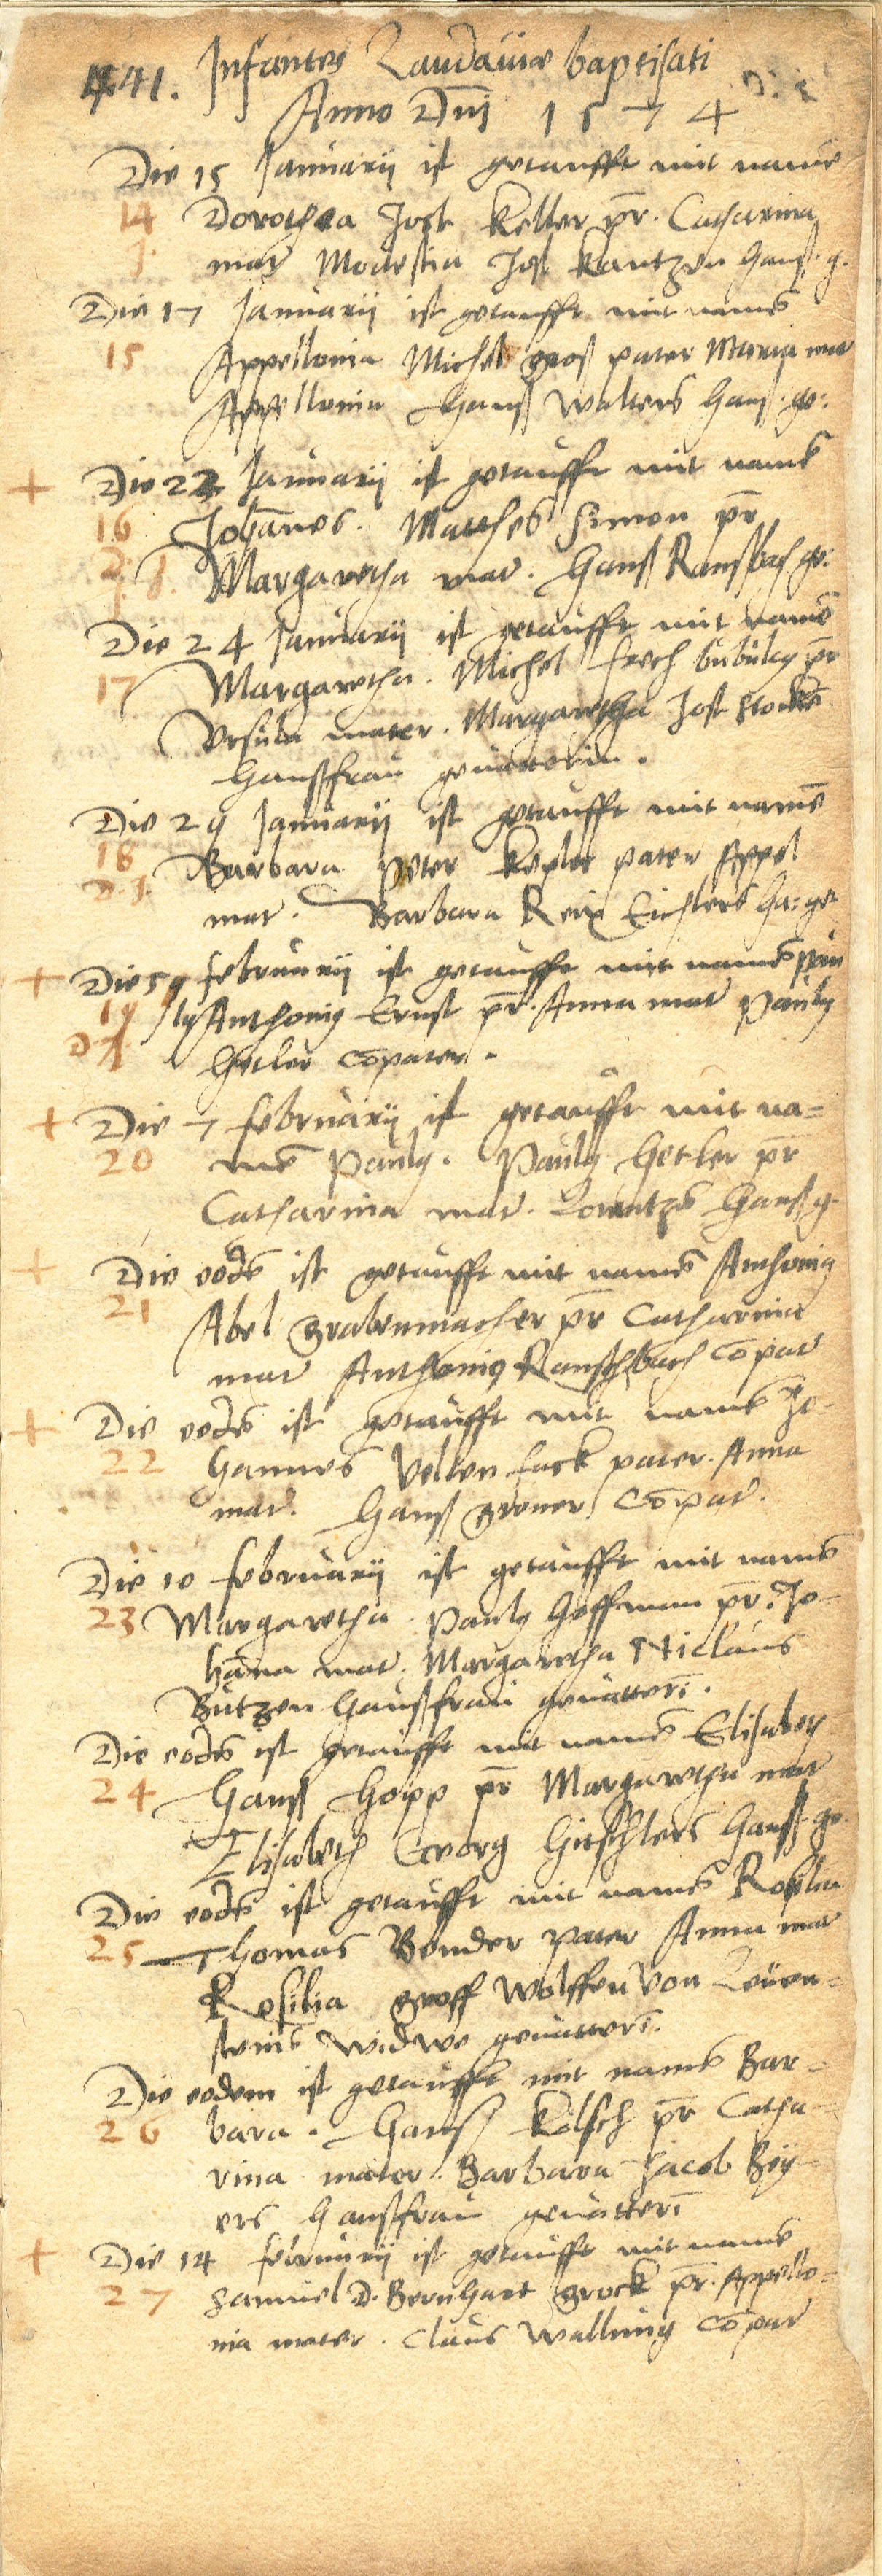 441. Infantes Landaviæ baptisati
Anno Dnj 1574
Die 15 Januarij ist getaufft mit name
14 Dorothea Jost Keller pr. Catharina
mat Modesta Jost Kantzen hauß. g.
Die 17 Januarij ist getaufft mit names
15 Appellonia Michel groß pater Maria mat
Appellonia Hanß Walters hauß. ge:
+ Die 22 Januarij ist getaufft mit names
16 Johanes. Matthes Simon pr
Margaretha mat. Hanß Ranßbach ge:
Die 24 Januarij ist getaufft mit name
17 Margaretha. Michel frech bubulcy pr
Ursula mater. Margaretha Jost
Haußfrau gevatterin.
Die 29 Januarij ist getaufft mit name
18 Barbara Peter Kepler pater Appel
mat. Barbara Eichlers ha: ge
+ Die 5 februarij ist getaufft mit names pau
19 ly Anthonig Ernst pr. Anna mat Pauly
Hetler copater.
+ Die 7 februarij ist getaufft mit na=
20 me Pauly. Pauly Hetler pr
Catharina mat. Lorentzs hauß g.
+ Die eode ist getaufft mit names Anthonig
21 Abel grabenmacher pr Catharina
mat Anthonig Ranschbach copat
+ Die eode ist getaufft mit names Jo-
22 hannes Velten fack pater. Anna
mat. Hanß groner copat.
Die 10 februarij ist getaufft mit names
23 Margaretha. Pauly Hoffman pr. Jo-
hana mat. Margaretha Niclaus
Butzen haußfrau gevatteri.
Die eode ist getaufft mit names Elisabeth
24 Hanß Hopp pr Margaretha mat
Elisabeth Georg Hitschlers hauß ge.
Die eode ist getaufft mit names Rosilia
25 Thomas Bender pater Anna mat
Rosilia groff Wolffen von Leüen=
steins widwe gevatteri.
Die eodem ist getaufft mit names Bar=
26 bara. Hanß Kölsch pr Catha-
rina mater. Barbara Jacob Bey-
ers haußfrau gevatteri
+ Die 14 februarij ist getaufft mit name
27 Samuel D. Bernhart Brock pr. Appello=
nia mater. Claus Walling copat